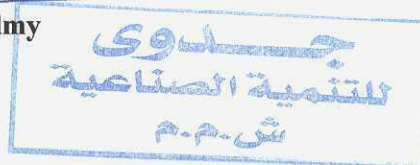 lmy
جدوى
للتنمية الصناعية
ش.م.م